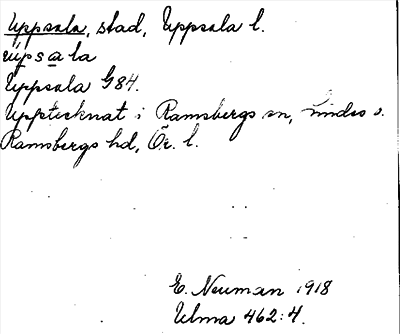 Uppsala, stad, Uppsala l.
üpsala
Uppsala G84.
Upptecknat i Ramsbergs sn, Lindes o.
Ramsbergs hd, Ör. l.
E. Neuman 1918
Ulma 462:4.